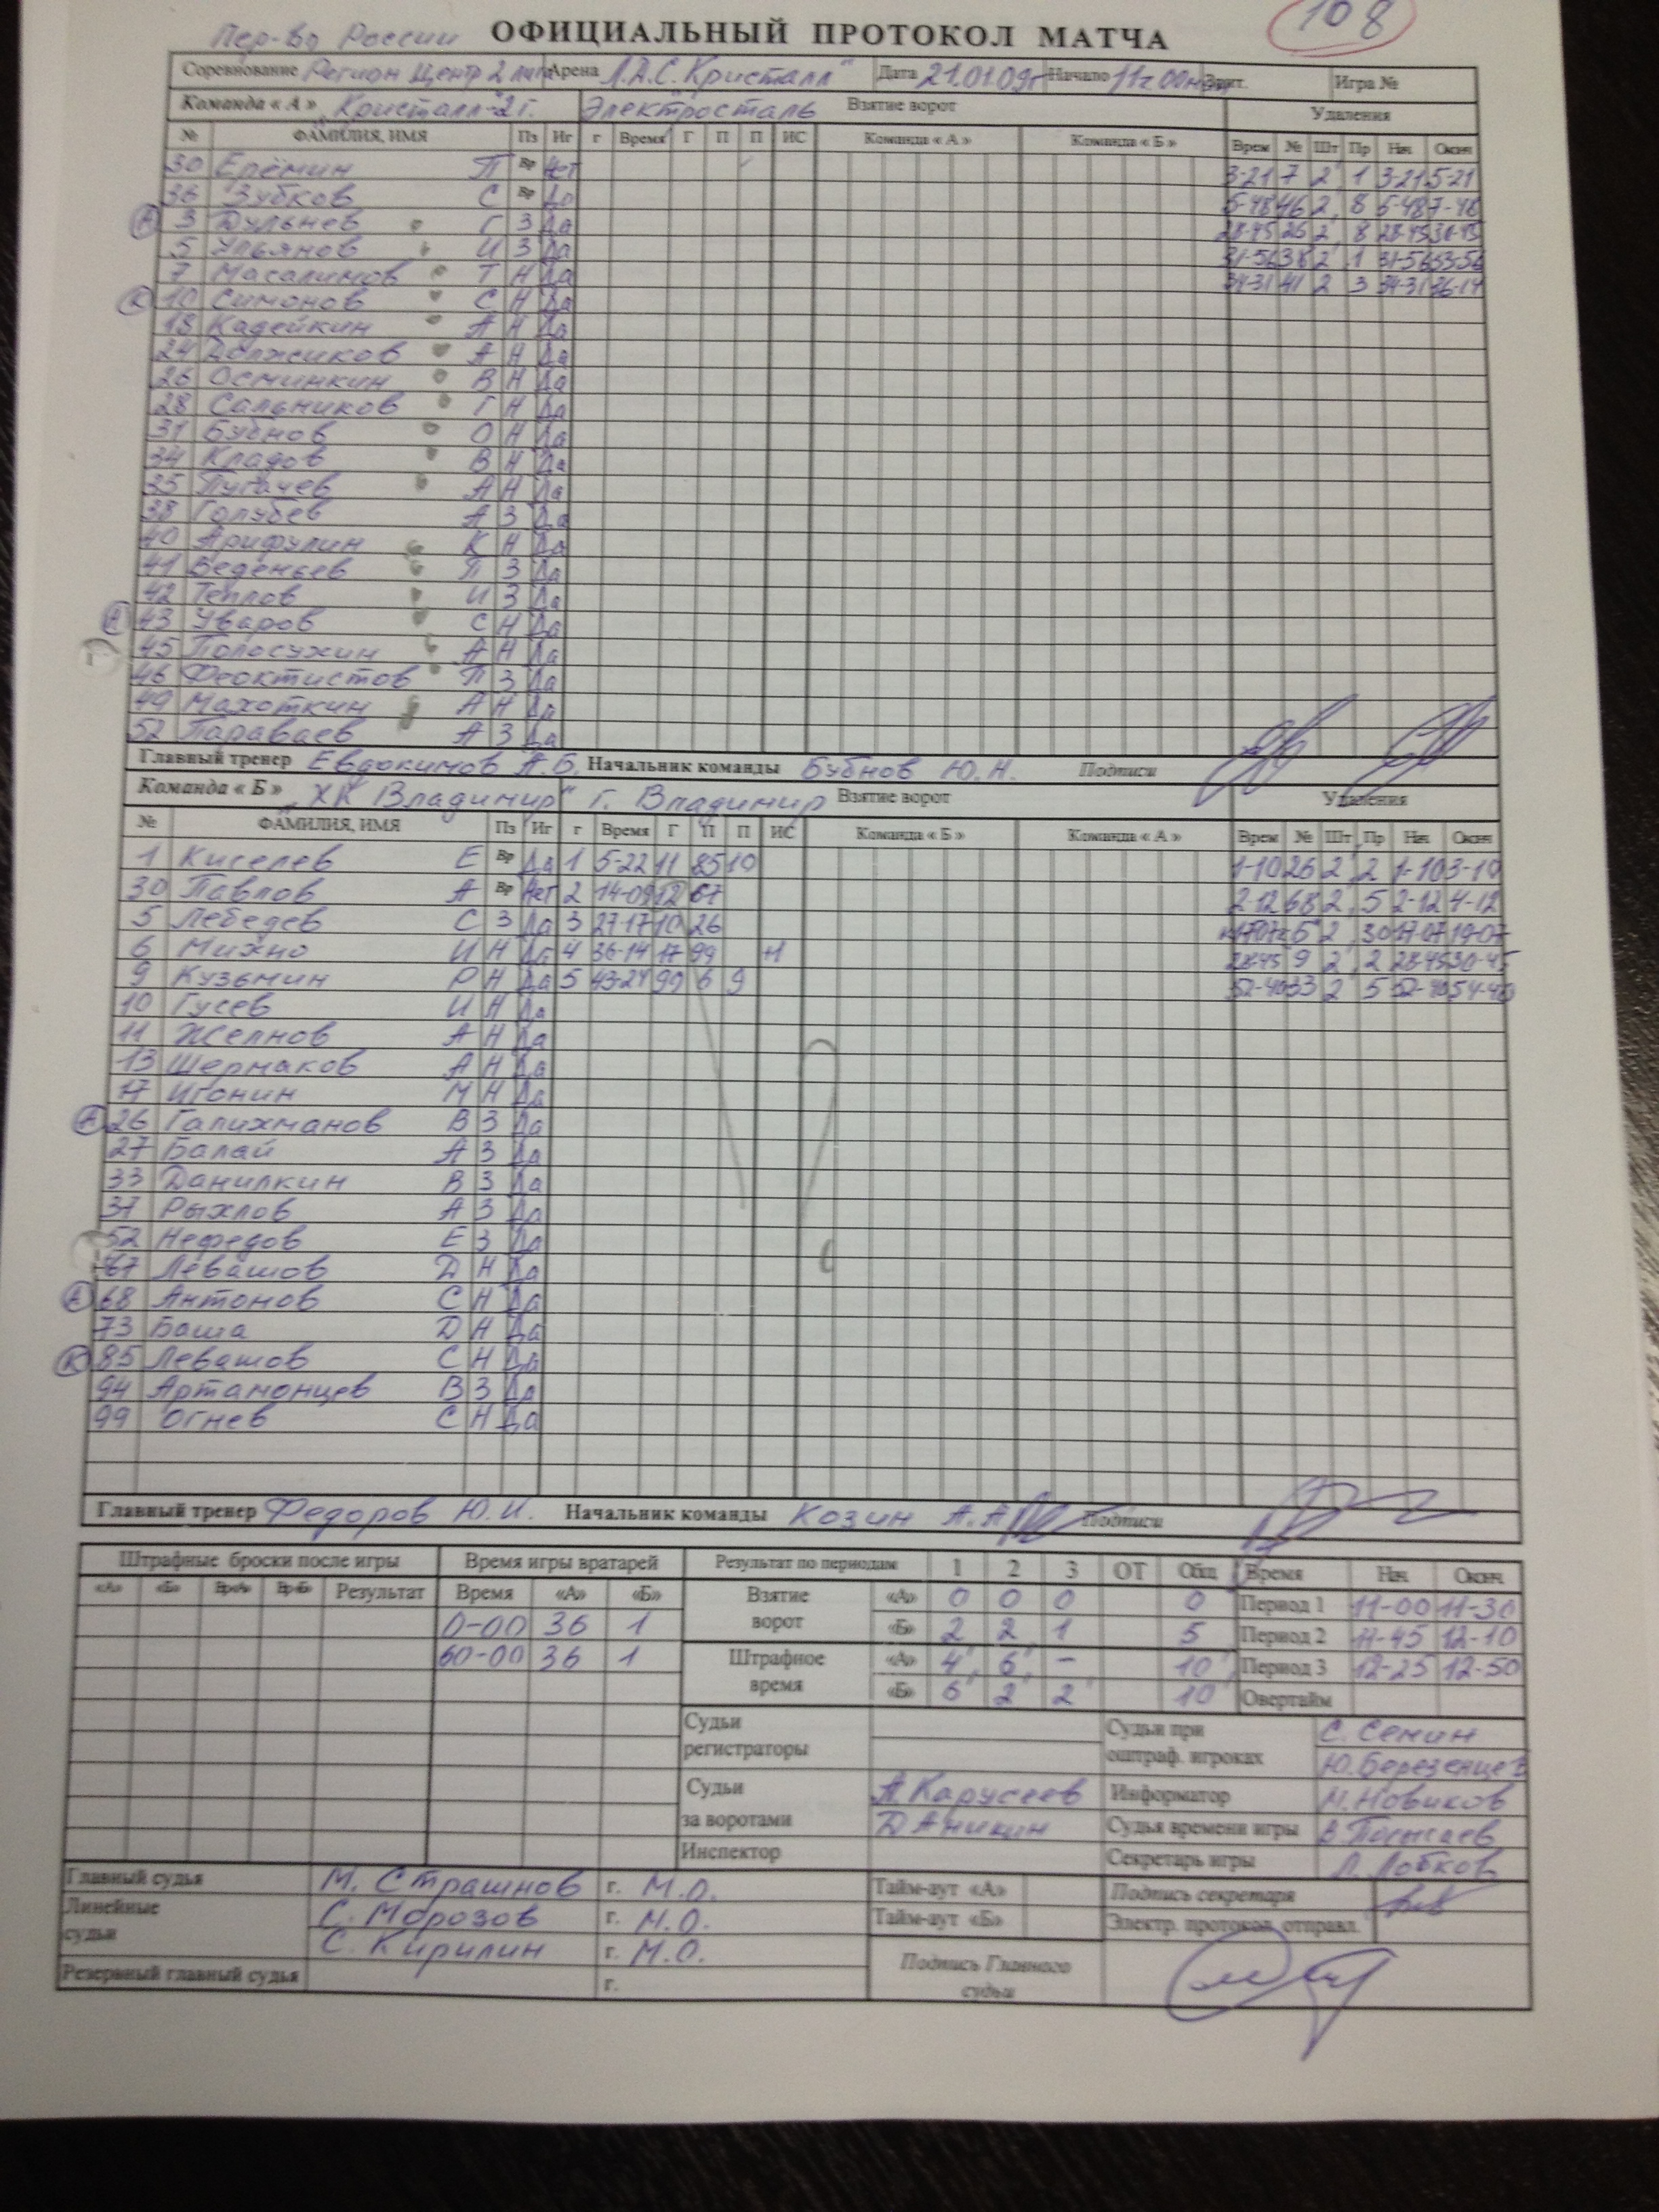 108
Пер-во России ОФИЦИАЛЬНЫЙ ПРОТОКОЛ МАТЧА
Соревнование Регион Центр 2 лига Арена Л.Д.С. Кристалл" Дата 21.01.09г Начало 11ч 00м Зрит. Игра №
Команда « А » Кристалл-2 г. Электросталь Взятие ворот Удаления
№ ФАМИЛИЯ, ИМЯ Пз Иг г Время Г П П ИС Команда « А » Команда « Б » Врем № Шт Пр Нач Оконч
30 Ерёмин П Вр Нет 3-21 7 2 1 3-21 5-21
36 Зубков С Вр Да 5-48 46 2 8 5-48 7-48
А 3 Дульнев Г З Да 28-45 26 2 8 28-45 30-45
5 Ульянов И З Да 31-56 38 2 1 31-56 33-56
7 Масалимов Т Н Да 34-31 41 2 3 34-31 36-14
К 10 Симонов С Н Да
18 Кадейкин А Н Да
24 Должиков А Н Да
26 Осминкин В Н Да
28 Сальников Г Н Да
31 Бубнов О Н Да
34 Кладов В Н Да
35 Пугачев А Н Да
38 Голубев А З Да
40 Арифулин К Н Да
41 Веденьев П З Да
42 Теплов И З Да
А 43 Уваров С Н Да
45 Полосухин А Н Да
46 Феоктистов П З Да
49 Махоткин А Н Да
52 Параваев А З Да
Главный тренер Евдокимов А.Б. Начальник команды Бубнов Ю.Н. Подписи
Команда « Б » „ХК Владимир" г. Владимир Взятие ворот Удаления
№ ФАМИЛИЯ, ИМЯ Пз Иг г Время Г П П ИС Команда « Б » Команда « А » Врем № Шт Пр Нач Оконч
1 Киселев Е Вр Да 1 5-22 11 85 10 1-10 26 2 2 1-10 3-10
30 Павлов А Вр Нет 2 14-09 12 67 2-12 68 2 5 2-12 4-12
5 Лебедев С З Да 3 27-17 10 26 17-07 6 2 30 17-07 19-07
6 Михно И Н Да 4 36-14 17 99 +1 28-45 9 2 2 28-45 30-45
9 Кузьмин Р Н Да 5 43-24 99 6 9 52-40 33 2 5 52-40 54-40
10 Гусев И Н Да
11 Желнов А Н Да
13 Шермаков А Н Да
17 Игонин М Н Да
А 26 Галихманов В З Да
27 Балай А З Да
33 Данилкин В З Да
37 Рыхлов А З Да
52 Нефедов Е З Да
67 Левашов D Н Да
А 68 Антонов С Н Да
73 Баша D Н Да
К 85 Левашов С Н Да
94 Артамонцев В З Да
99 Огнев С Н Да
Главный тренер Федоров Ю.И. Начальник команды Козин А.А. Подписи
Штрафные броски после игры Время игры вратарей Результат по периодам 1 2 3 ОТ Общ Время Нач Оконч
«А» «Б» Вр«А» Вр«Б» Результат Время «А» «Б» Взятие ворот «А» 0 0 0 0 Период 1 11-00 11-30
0-00 36 1 «Б» 2 2 1 5 Период 2 11-45 12-10
60-00 36 1 Штрафное время «А» 4 6 - 10 Период 3 12-25 12-50
«Б» 6 2 2 10 Овертайм
Судьи регистраторы Судьи при оштраф. игроках С. Семин
Ю. Березенцев
Судьи за воротами А Карусеев Информатор М. Новиков
Д Аникин Судья времени игры
Инспектор Секретарь игры Л. Лобков
Главный судья М. Страшнов г. М.О. Тайм-аут «А» Подпись секретаря
Линейные судьи С. Морозов г. М.О. Тайм-аут «Б» Электр. протокол отправл.
С. Кирилин г. М.О. Подпись Главного судьи
Резервный главный судья г.